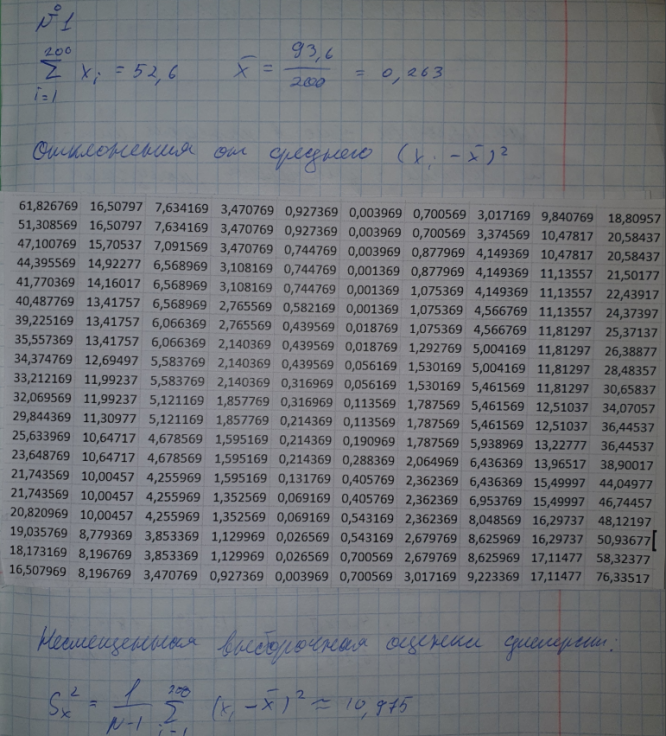 №1
200
∑ xᵢ = 52,6    x̄ = 93,6 / 200 = 0,263
i=1
Отклонения от среднего (xᵢ - x̄)²
61,826769 16,50797 7,634169 3,470769 0,927369 0,003969 0,700569 3,017169 9,840769 18,80957
51,308569 16,50797 7,634169 3,470769 0,927369 0,003969 0,700569 3,374569 10,47817 20,58437
47,100769 15,70537 7,091569 3,470769 0,744769 0,003969 0,877969 4,149369 10,47817 20,58437
44,395569 14,92277 6,568969 3,108169 0,744769 0,001369 0,877969 4,149369 11,13557 21,50177
41,770369 14,16017 6,568969 3,108169 0,744769 0,001369 1,075369 4,149369 11,13557 22,43917
40,487769 13,41757 6,568969 2,765569 0,582169 0,001369 1,075369 4,566769 11,13557 24,37397
39,225169 13,41757 6,066369 2,765569 0,439569 0,018769 1,075369 4,566769 11,81297 25,37137
35,557369 13,41757 6,066369 2,140369 0,439569 0,018769 1,292769 5,004169 11,81297 26,38877
34,374769 12,69497 5,583769 2,140369 0,439569 0,056169 1,530169 5,004169 11,81297 28,48357
33,212169 11,99237 5,583769 2,140369 0,316969 0,056169 1,530169 5,461569 11,81297 30,65837
32,069569 11,99237 5,121169 1,857769 0,316969 0,113569 1,787569 5,461569 12,51037 34,07057
29,844369 11,30977 5,121169 1,857769 0,214369 0,113569 1,787569 5,461569 12,51037 36,44537
25,633969 10,64717 4,678569 1,595169 0,214369 0,190969 1,787569 5,938969 13,22777 36,44537
23,648769 10,64717 4,678569 1,595169 0,214369 0,288369 2,064969 6,436369 13,96517 38,90017
21,743569 10,00457 4,255969 1,595169 0,131769 0,405769 2,362369 6,436369 15,49997 44,04977
21,743569 10,00457 4,255969 1,352569 0,069169 0,405769 2,362369 6,953769 15,49997 46,74457
20,820969 10,00457 4,255969 1,352569 0,069169 0,543169 2,362369 8,048569 16,29737 48,12197
19,035769 8,779369 3,853369 1,129969 0,026569 0,543169 2,679769 8,625969 16,29737 50,93677[
18,173169 8,196769 3,853369 1,129969 0,026569 0,700569 2,679769 8,625969 17,11477 58,32377
16,507969 8,196769 3,470769 0,927369 0,003969 0,700569 3,017169 9,223369 17,11477 76,33517
Несмещенная выборочная оценка дисперсии:
200
Sₓ² = 1 / N-1 ∑ (xᵢ - x̄)² ≈ 10,975
i=1